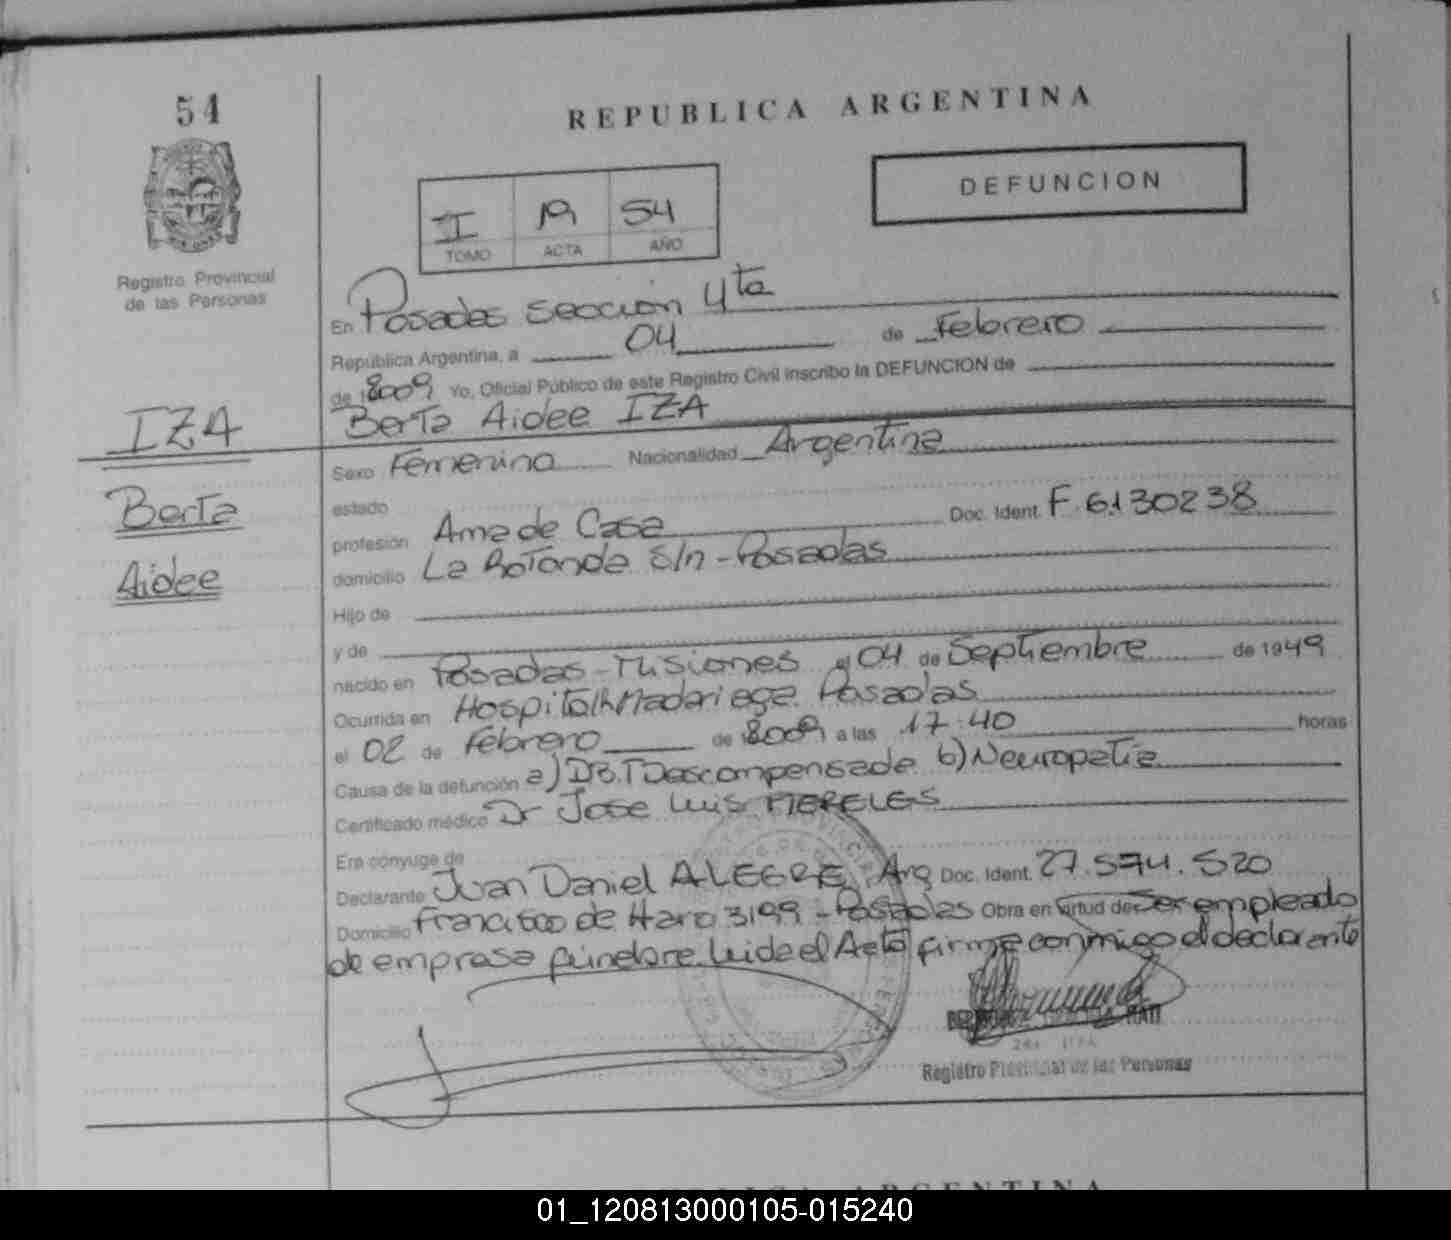 54
REPUBLICA ARGENTINA
DEFUNCION
I 19 54
TOMO ACTA AÑO
Registro Provincial
de las Personas
En Posadas sección 4ta
República Argentina, a 04 de Febrero
de 2009 Yo, Oficial Público de este Registro Civil inscribo la DEFUNCION de
IZA
Berta Aidee IZA
Sexo Femenino Nacionalidad Argentina
Berta
estado
profesión Ama de Casa Doc. Ident. F. 6.130238
Aidee
domicilio La Rotonda S/n - Posadas
Hijo de
y de
nacido en Posadas - Misiones el 04 de Septiembre de 1949
Ocurrida en Hospital R Madariaga Posadas
el 02 de Febrero de 2009 a las 17:40 horas
Causa de la defunción a) DBT Descompensada b) Neuropatía
Certificado médico Dr Jose Luis MERELES
Era cónyuge de
Declarante Juan Daniel ALEGRE, Arg Doc. Ident. 27.574.520
Domicilio Francisco de Haro 3199 - Posadas Obra en virtud de Ser empleado
de empresa fúnebre leida el Acta firma conmigo el declarante
Registro Provincial de las Personas
REPUBLICA ARGENTINA
01_120813000105-015240